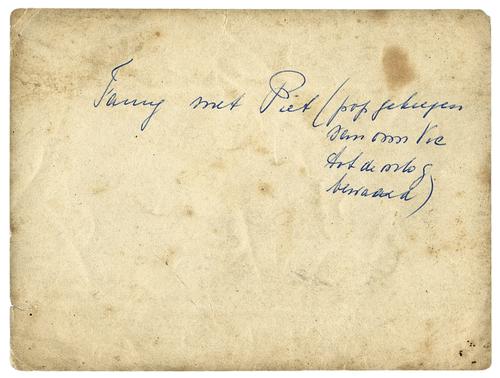 Fanny met Piet (pop gekregen
van oom Vic
tot de oorlog
bewaard)